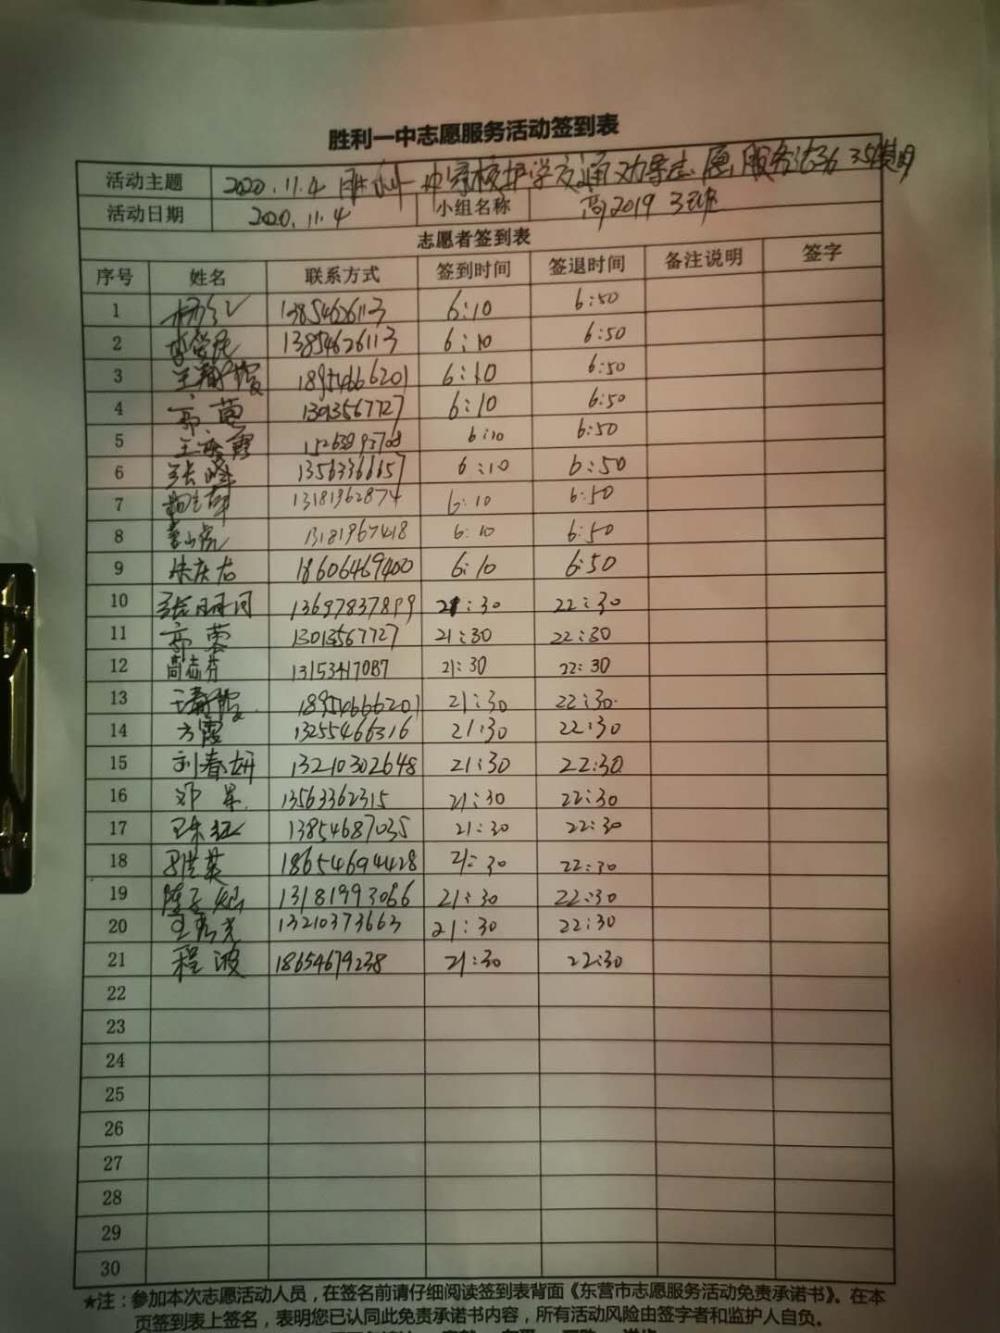 胜利一中志愿服务活动签到表
活动主题 2020.11.4 胜利一中家校护学交通劝导志愿服务活动
活动日期 2020.11.4 小组名称 高2019 3班
志愿者签到表
序号 姓名 联系方式 签到时间 签退时间 备注说明 签字
1 13854626113 6:10 6:50
2 13854626113 6:10 6:50
3 18954666201 6:10 6:50
4 6:10 6:50
5 王海霞 6:10 6:50
6 张峰 6:10 6:50
7 13181962874 6:10 6:50
8 13181967418 6:10 6:50
9 18606469400 6:10 6:50
10 13697837899 21:30 22:30
11 13013567727 21:30 22:30
12 21:30 22:30
13 18954666201 21:30 22:30
14 方霞 13255466316 21:30 22:30
15 刘春妍 13210302648 21:30 22:30
16 邓军 13563362315 21:30 22:30
17 13854687035 21:30 22:30
18 18654694428 21:30 22:30
19 13181993066 21:30 22:30
20 13210373663 21:30 22:30
21 程波 18654679238 21:30 22:30
22
23
24
25
26
27
28
29
30
★注：参加本次志愿活动人员，在签名前请仔细阅读签到表背面《东营市志愿服务活动免责承诺书》。在本
页签到表上签名，表明您已认同此免责承诺书内容，所有活动风险由签字者和监护人自负。